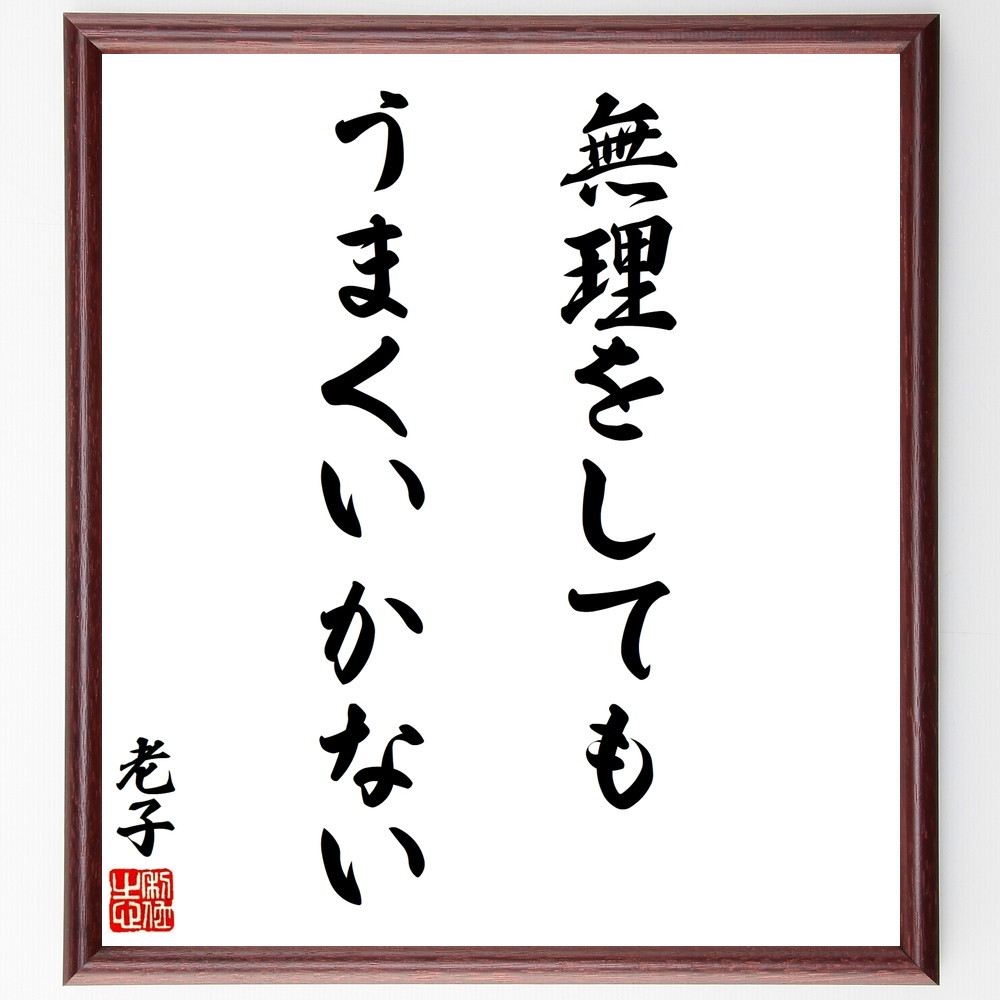 無理をしても
うまくいかない
老子